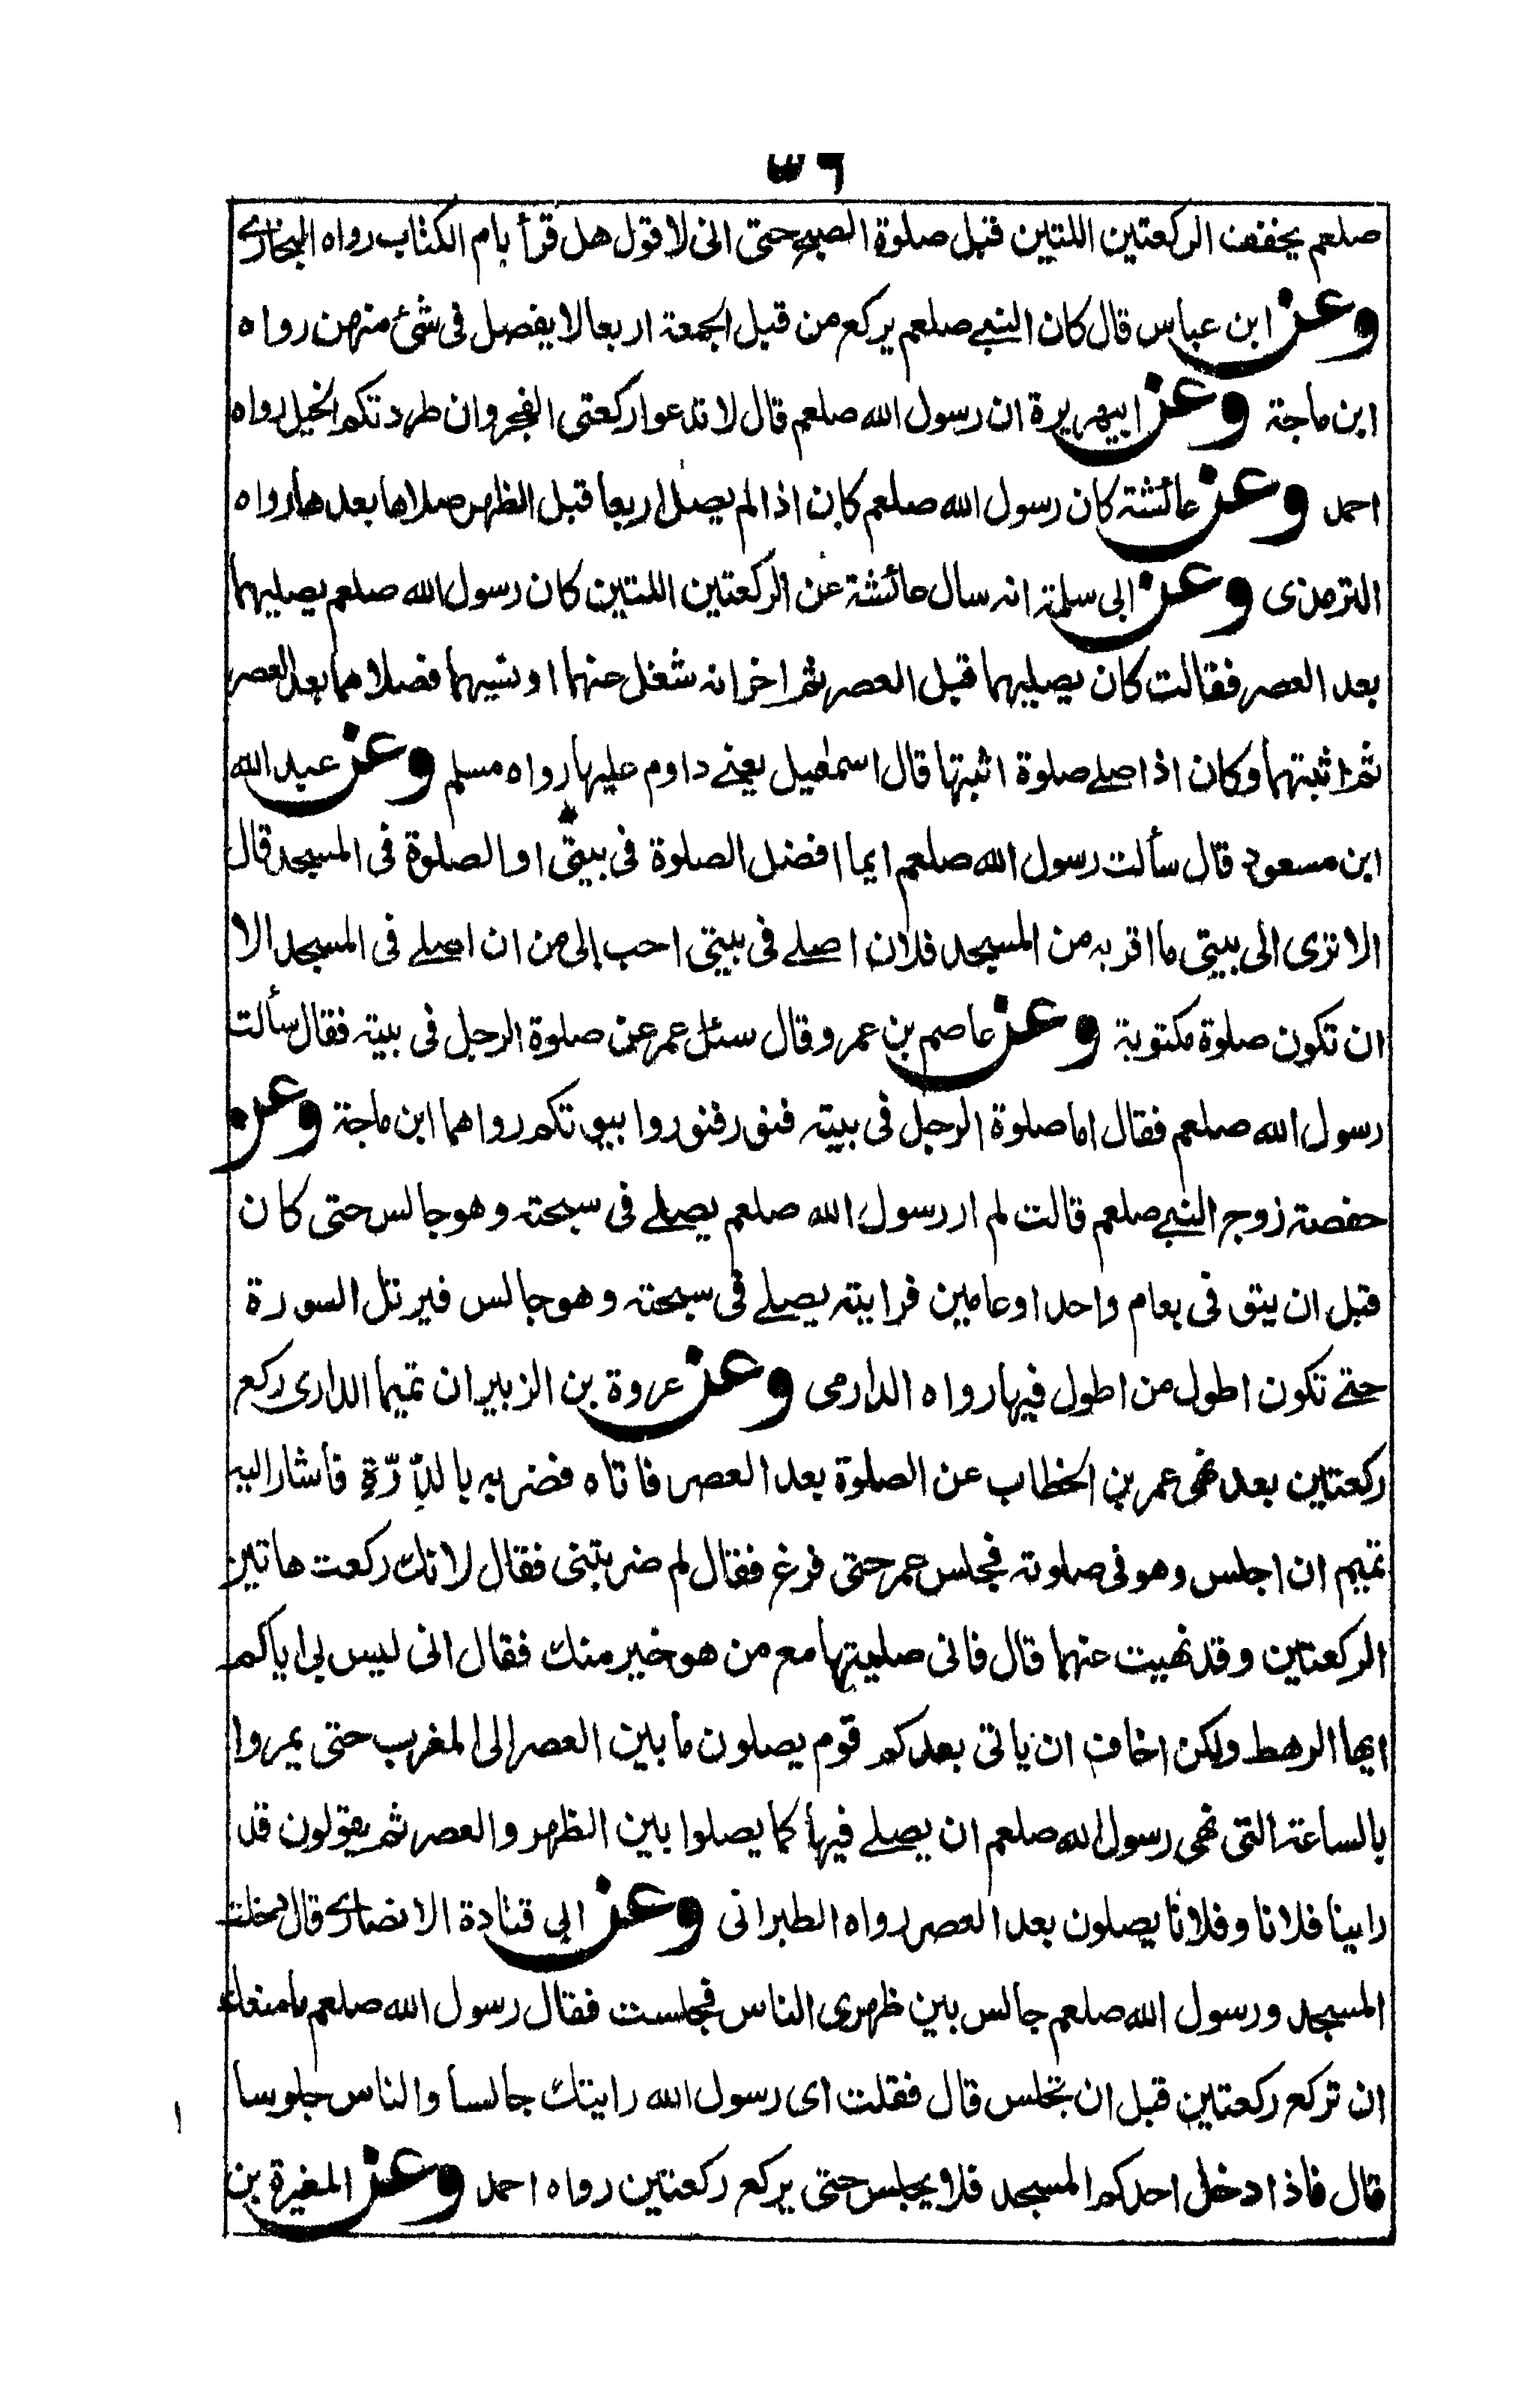 صلعم يخفف الركعتين اللتين قبل صلوة الصبح حتى انى لاقول هل قرأ بام الكتاب رواه البخارى
وعن ابن عباس قال كان النبى صلعم يركع من قبل الجمعة اربعا لا يفصل فى شئ منهن رواه
ابن ماجة وعن ابيهريرة ان رسول الله صلعم قال لا تدعوا ركعتى الفجر وان طردتكم الخيل رواه
احمد وعن عائشة كان رسول الله صلعم كان اذا لم يصل اربعا قبل الظهر صلاها بعدها رواه
الترمذى وعن ابى سلمة انه سال عائشة عن الركعتين اللتين كان رسول الله صلعم يصليهما
بعد العصر فقالت كان يصليهما قبل العصر ثم اخر انه شغل عنهما او نسيهما فصلاهما بعد العصر
ثم اثبتهما وكان اذا صلے صلوة اثبتها قال اسمعيل يعنے داوم عليها رواه مسلم وعن عبد الله
ابن مسعود قال سألت رسول الله صلعم ايما افضل الصلوة فى بيتى او الصلوة فى المسجد قال
الا ترى الى بيتى ما اقربه من المسجد فلان اصلے فى بيتى احب إلى من ان اصلے فى المسجد الا
ان تكون صلوة مكتوبة وعن عاصم بن عمرو قال سئل عمر عن صلوة الرجل فى بيته فقال سألت
رسول الله صلعم فقال اما صلوة الرجل فى بيته فنور فنوروا بيوتكم رواهما ابن ماجة وعن
حفصة زوج النبے صلعم قالت لم ار رسول الله صلعم يصلے فى سبحته وهو جالس حتى كان
قبل ان يتوفى بعام واحد او عامين فرايته يصلے فى سبحته وهو جالس فيرتل السورة
حتے تكون اطول من اطول فيها رواه الدارمى وعن عروة بن الزبير ان تميما الدارى ركع
ركعتين بعد نهى عمر بن الخطاب عن الصلوة بعد العصر فاتاه فضربه بالدِّرَّةِ فأشار اليه
تميم ان اجلس وهو فى صلوته فجلس عمر حتى فرغ فقال لم ضربتنى فقال لانك ركعت هاتين
الركعتين وقد نهيت عنهما قال فانى صليتها مع من هو خير منك فقال انى ليس بى اياكم
ايها الرهط ولكن اخاف ان ياتى بعدكم قوم يصلون ما بين العصر الى المغرب حتى يمروا
بالساعة التى نهى رسول الله صلعم ان يصلے فيها كما يصلوا بين الظهر والعصر ثم يقولون قد
راينا فلانا وفلانا يصلون بعد العصر رواه الطبرانى وعن ابى قتادة الانصارى قال دخلت
المسجد ورسول الله صلعم جالس بين ظهرى الناس فجلست فقال رسول الله صلعم ما منعك
ان تركع ركعتين قبل ان تجلس قال فقلت اى رسول الله رايتك جالسا والناس جلوسا
قال فاذا دخل احدكم المسجد فلا يجلس حتى يركع ركعتين رواه احمد وعن المغيرة بن